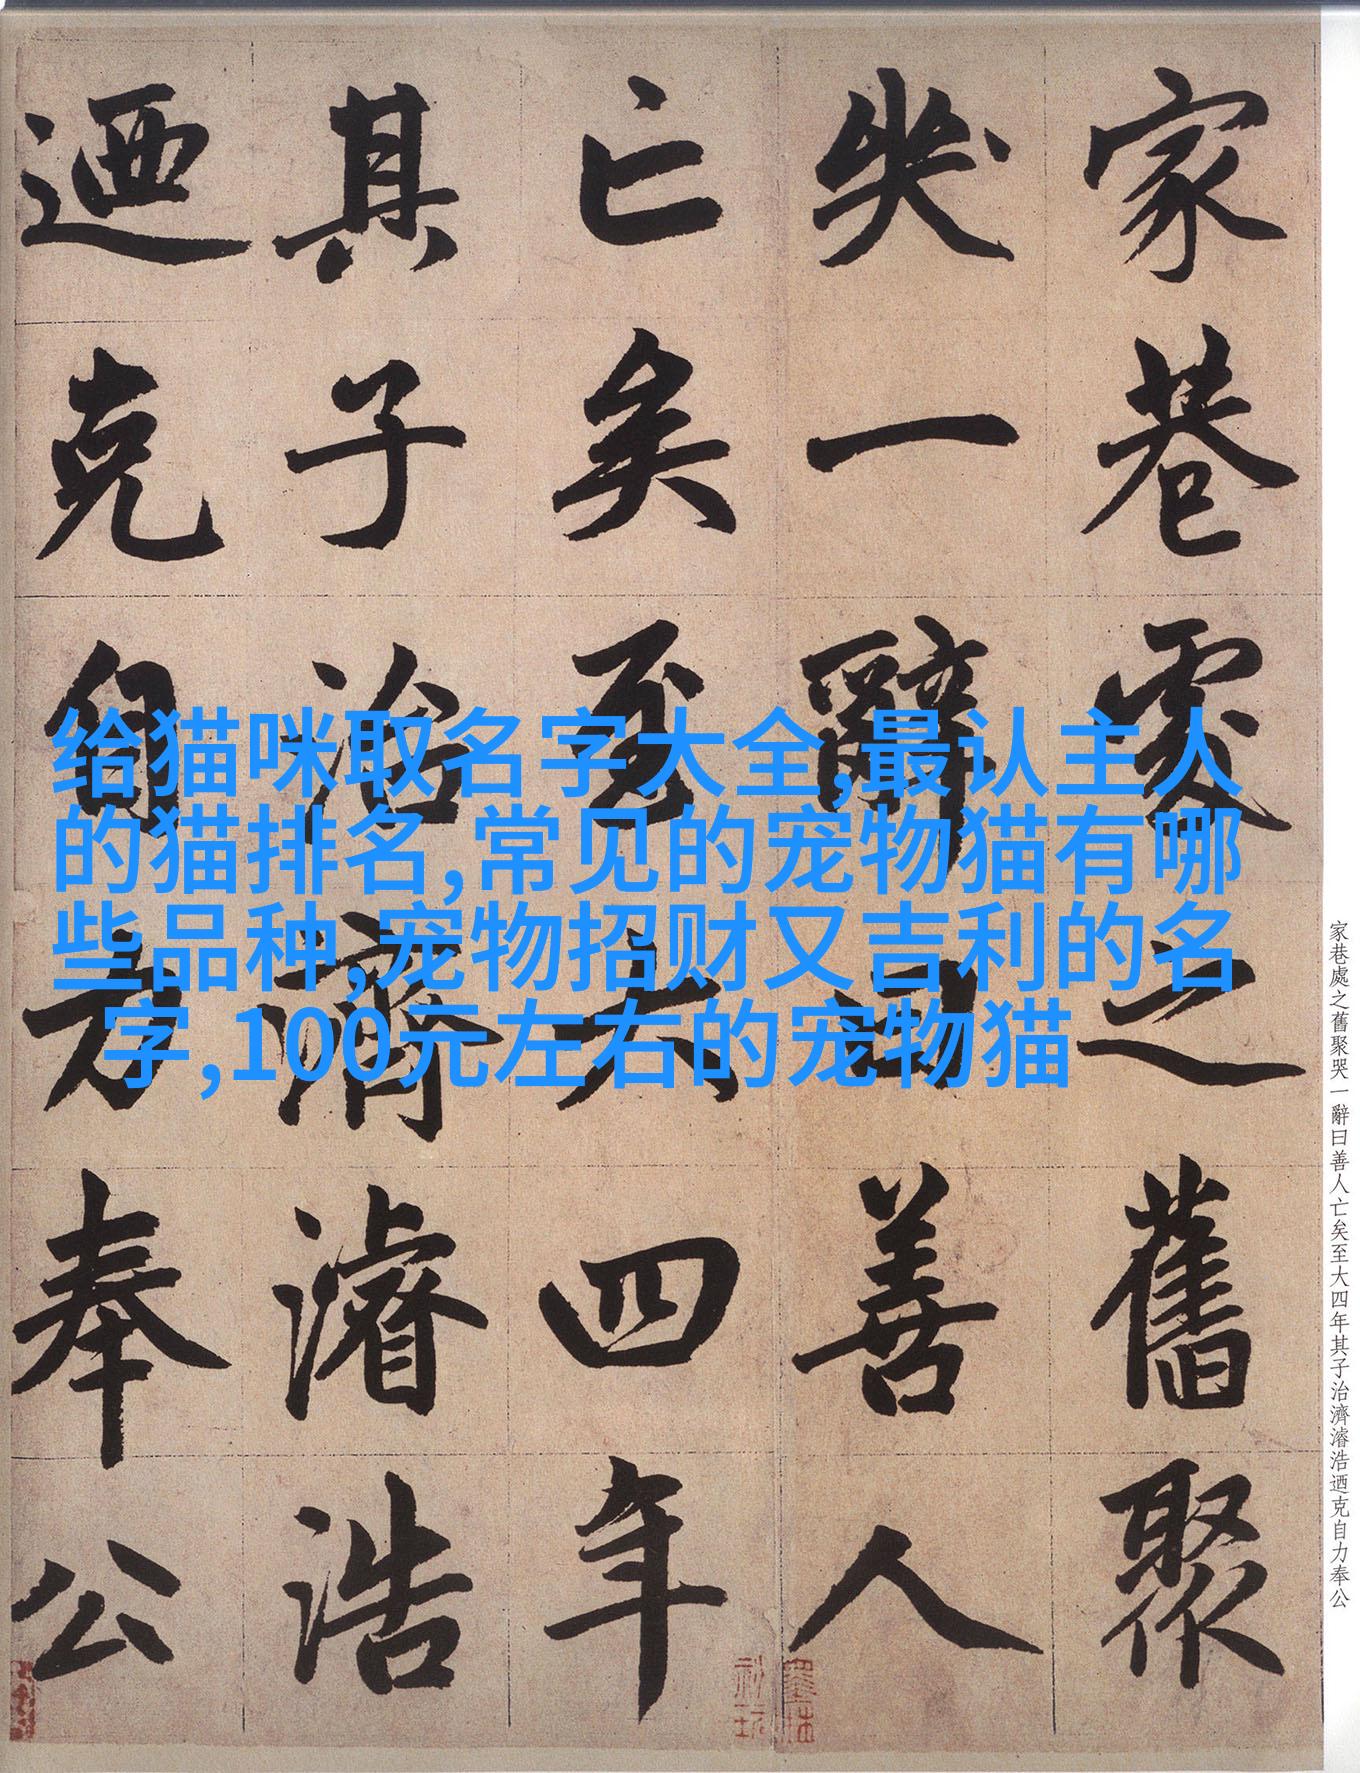 家巷處之舊聚
哭一辭曰善人
亡矣至大四年
其子治濟濬浩
迺克自力奉公
给猫咪取名字大全,最认主人
的猫排名,常见的宠物猫有哪
些品种,宠物招财又吉利的名
字,100元左右的宠物猫
家巷處之舊聚哭一辭曰善人亡矣至大四年其子治濟濬浩迺克自力奉公